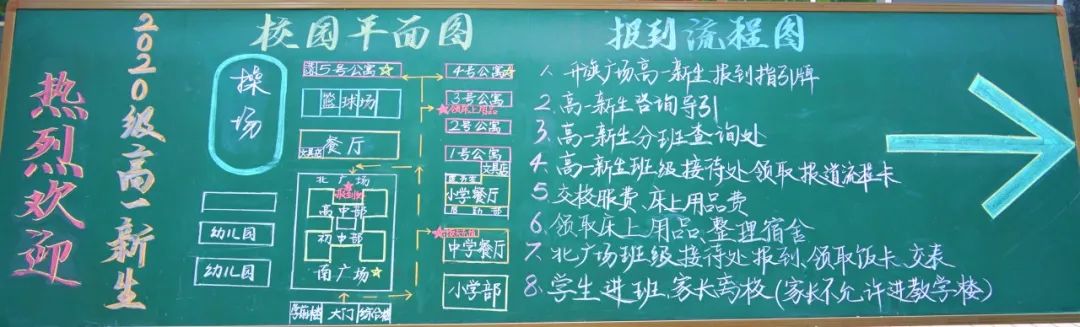 热烈欢迎
2020级高一新生
校园平面图
操场
5号公寓
篮球场
餐厅
文具店
北广场
报到处
高中部
初中部
南广场
幼儿园
幼儿园
学前楼
大门
综合楼
4号公寓
3号公寓
领床上用品
2号公寓
1号公寓
文具店
小学餐厅
后勤部
中学餐厅
小学部
报到流程图
1. 升旗广场高一新生报到指引牌
2. 高一新生咨询导引
3. 高一新生分班查询处
4. 高一新生班级接待处领取报道流程卡
5. 交校服费、床上用品费
6. 领取床上用品、整理宿舍
7. 北广场班级接待处报到、领取饭卡、交表
8. 学生进班、家长离校(家长不允许进教学楼)